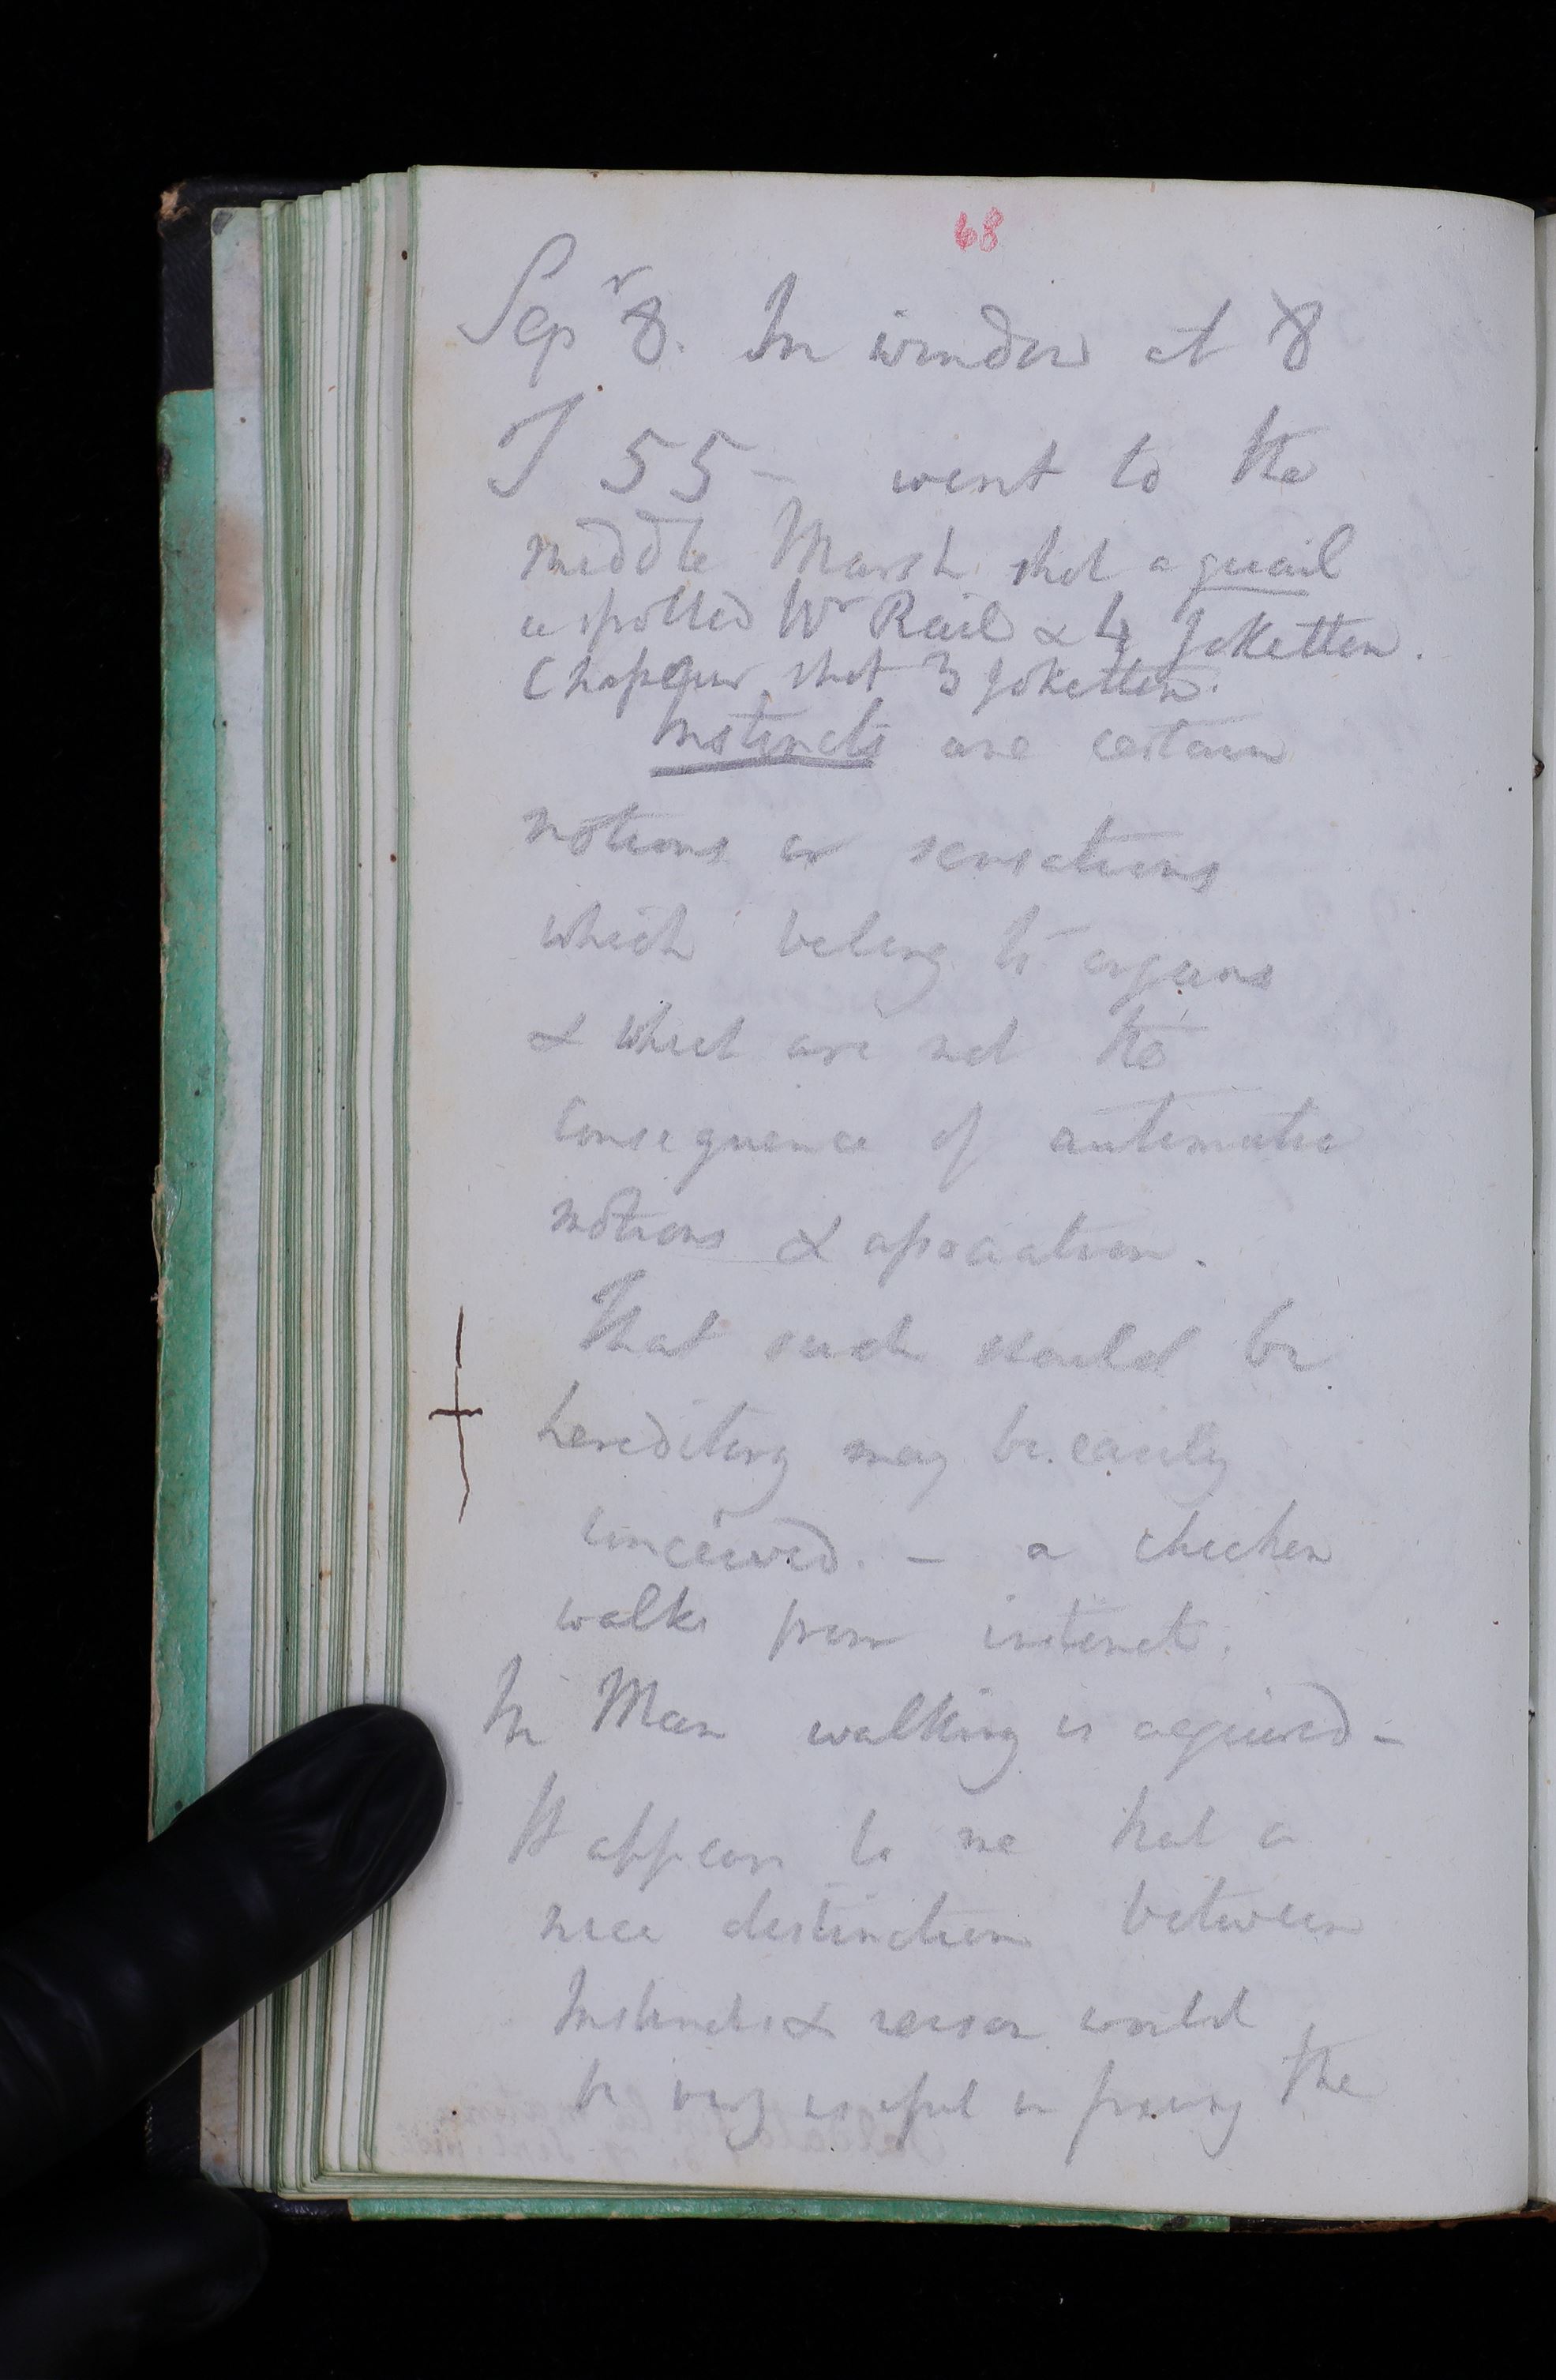 68
Sepr 8. In window at 8
T 55 - went to the
middle Marsh shot a quail
a spotted Wr Rail & 4 Jokettern.
shot 3 Jokettern.
Instincts are certain
motions or sensations
which belong to organs
& what are not the
consequence of automatic
motions & association.
That such should be
hereditary may be easily
conceived. - a chicken
walks from instinct.
In Man walking is acquired -
It appears to me that a
nice distinction between
Instincts & reason would
be very useful in proving the